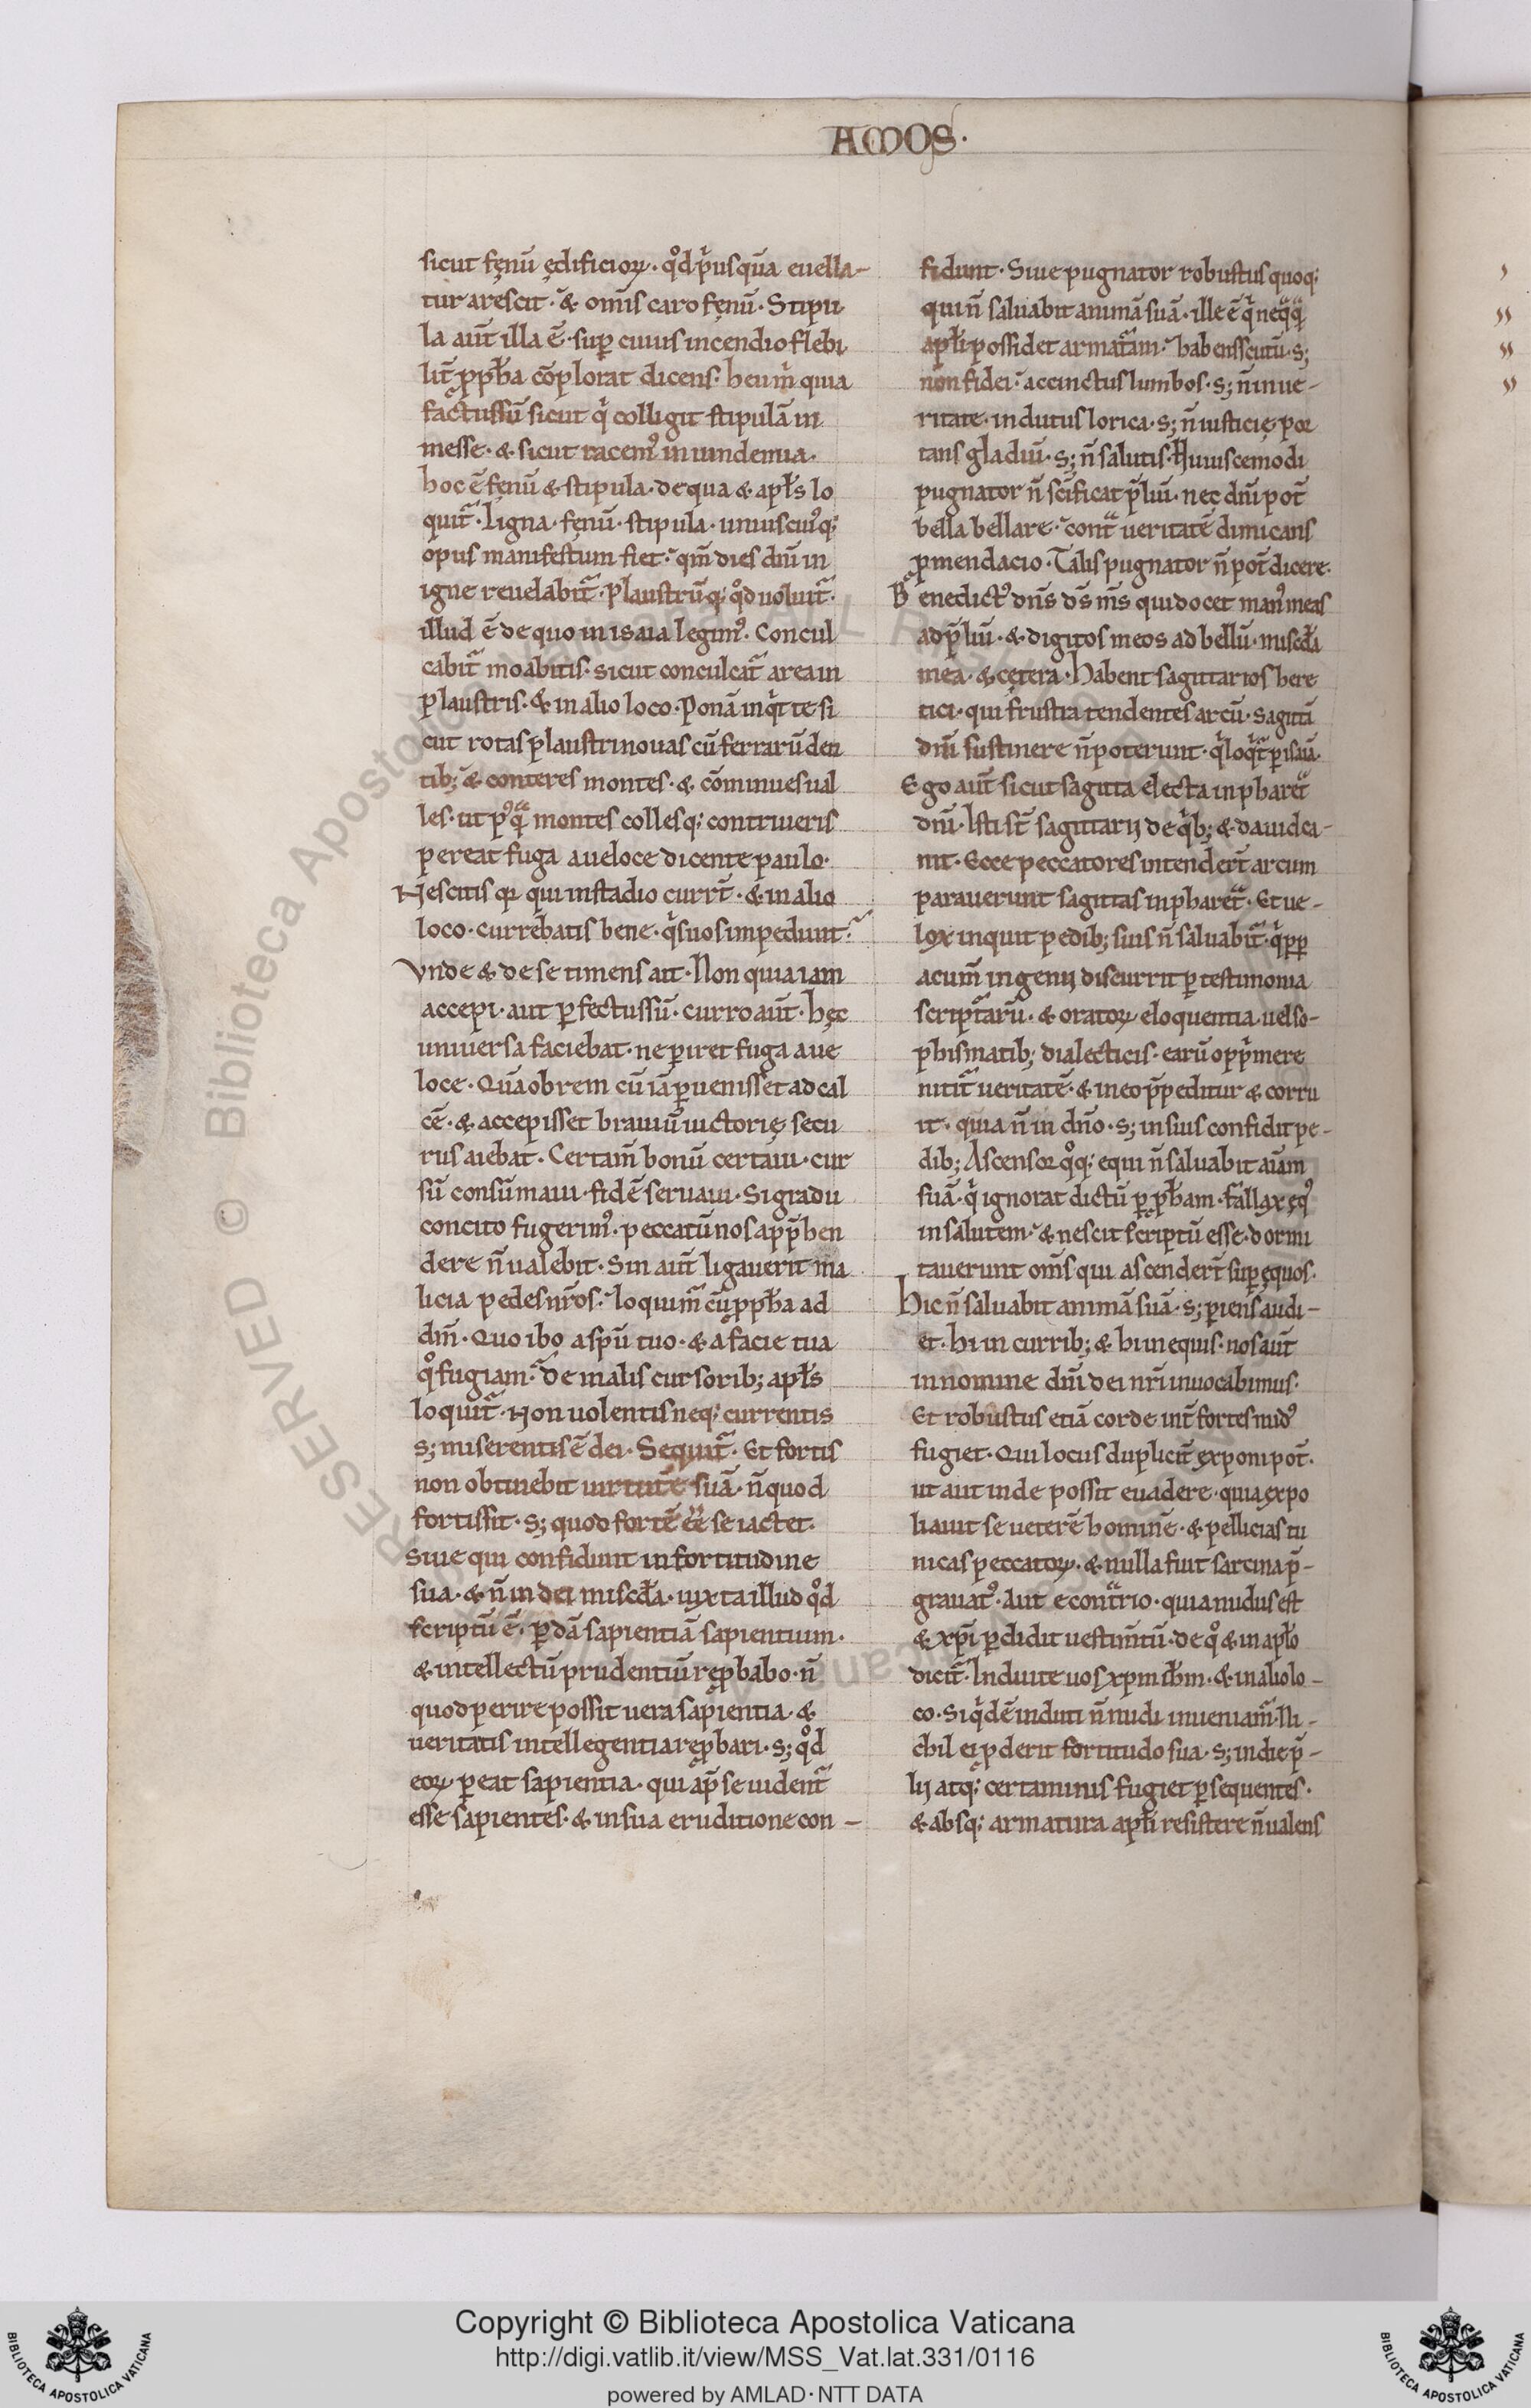 AMOS·
sicut fęnū ędificioꝝ· qͦd pͥusquā euella-
tur arescit· & om̄is caro fęnū· Stipu
la aut̄ illa ē· suꝑ cuius incendio flebi
lit̄ ꝓph̄a cōplorat dicens· heu m̄ quia
factus sū sicut qͥ colligit stipulā in
messe· & sicut racem᷒ in uindemia·
hoc ē fęnū & stipula· de qua & apl̄s lo
quit᷑· Ligna· fęnū· stipula· uniuscui᷒q;
opus manifestum fiet· qm̄ dies dn̄i in
igne reuelabit᷑· Plaustrū q; qͦd uoluit᷑·
illud ē de quo in isaia legim᷒· Concul
cabit᷑ moabitis· sicut conculcat᷑ area in
plaustris· & in alio loco· Ponā inqͥt te si
cut rotas plaustri nouas cū ferrarū den
tib; & conteres montes· & cōminues ual
les· ut p᷒qᷓ montes colles q; contriueris
pereat fuga a ueloce dicente paulo·
Nescitis qꝛ qui in stadio curr̄t· & in alio
loco· currebatis bene· qͥs uos impediunt·
Vnde & de se timens ait· Non quia iam
accepi· aut ꝑfectus sū· curro aut̄· hęc
uniuersa faciebat· ne ꝑiret fuga a ue
loce· Quāobrem cū iā ꝑuenisset ad cal
cē· & accepisset brauiū uictorię secu
rus aiebat· Certam̄ bonū certaui· cur
sū consūmaui· fidē seruaui· Si gradu
concito fugerim᷒· peccatū nos app̄hen
dere n̄ ualebit· Sin aut̄ ligauerit ma
licia pedes nr̄os· loquim᷑ cū ꝓph̄a ad
dm̄· Quo ibo a sp̄u tuo· & a facie tua
qͦ fugiam· De malis cursorib; apl̄s
loquit᷑· Non uolentis neq; currentis
s; miserentis ē dei· Sequit᷑· Et fortis
non obtinebit uirtutē suā· n̄ quod
fortis sit· s; quod fortē eē se iactet·
Siue qui confidunt in fortitudine
sua· & n̄ in dei miscd̄a· iuxta illud qͦd
scriptū ē· ꝑdā sapientiā sapientium·
& intellectū prudentiū reꝓbabo· n̄
quod perire possit uera sapientia· &
ueritatis intellegentia reꝓbari· s; qͦd
eoꝝ ꝑeat sapientia· qui ap̄ se uident᷑
esse sapientes· & in sua eruditione con-
fidunt· Siue pugnator robustus quoq;
qui n̄ saluabit animā suā· ille ē qͥ neqͣqͣ
apl̄i possidet armat᷑am· habens scutū· s;
non fidei· accinctus lumbos· s; n̄ in ue-
ritate· indutus lorica· s; n̄ iusticię· por
tans gladiū· s; n̄ salutis· Huiuscemodi
pugnator n̄ sc̄ificat p̄liū· nec dn̄i pot̄
bella bellare· contᷓ ueritatē dimicans
ꝓ mendacio· Talis pugnator n̄ pot̄ dicere·
Benedict᷒ dn̄s ds̄ m̄s qui docet man᷒ meas
ad p̄liū· & digitos meos ad bellū· miscd̄a
mea· & cętera· Habent sagittarios here
tici· qui frustra tendentes arcū· sagittā
dn̄i sustinere n̄ poterunt· qͥ loqͥt᷑ ꝑ isaiā·
Ego aut̄ sicut sagitta electa in pharetᷓ
dn̄i· Isti st̄ sagittarij de qͥb; & dauid ca-
nit· Ecce peccatores intender̄t arcum
parauerunt sagittas in pharetᷓ· Et ue-
lox inquit pedib; suis n̄ saluabit᷑· qͥ ꝓp
acum̄ ingenij discurrit ꝑ testimonia
script᷑arū· & oratoꝝ eloquentia· uel so-
phismatib; dialecticis· earū oppͥmere
nitit᷑ ueritatē· & in eo p̄peditur & corru
it· quia n̄ in dn̄o· s; in suis confidit pe-
dib; Ascensor qͦq; equi n̄ saluabit aīam
suā· qͥ ignorat dictū ꝑ ꝓph̄am· fallax eq᷒
in salutem· & nescit scriptū esse· dormi
tauerunt om̄s qui ascender̄t suꝑ ęquos·
Hic n̄ saluabit animā suā· s; ꝑiens audi-
et· hi in currib; & hi in equis· nos aut̄
in nomine dn̄i dei nr̄i inuocabimus·
Et robustus etiā corde int̄ fortes nud᷒
fugiet· Qui locus duplicit̄ exponi pot̄·
ut aut inde possit euadere· quia expo
liauit se ueterē hominē· & pellicias tu
nicas peccatoꝝ· & nulla fuit sarcina p̄-
grauat᷒· Aut e contᷓrio· quia nudus est
& xp̄i ꝑdidit uestim̄tū· de qͦ & in apl̄o
dicit᷑· Induite uos xp̄m ih̄m· & in alio lo-
co· Si qͥdē induti n̄ nudi inueniam᷑· Ni-
chil ei ꝓderit fortitudo sua· s; in die p̄-
lij atq; certaminis fugiet ꝑsequentes·
& absq; armatura apl̄i resistere n̄ ualens
Copyright © Biblioteca Apostolica Vaticana
http://digi.vatlib.it/view/MSS_Vat.lat.331/0116
powered by AMLAD·NTT DATA
BIBLIOTECA APOSTOLICA VATICANA
BIBLIOTECA APOSTOLICA VATICANA